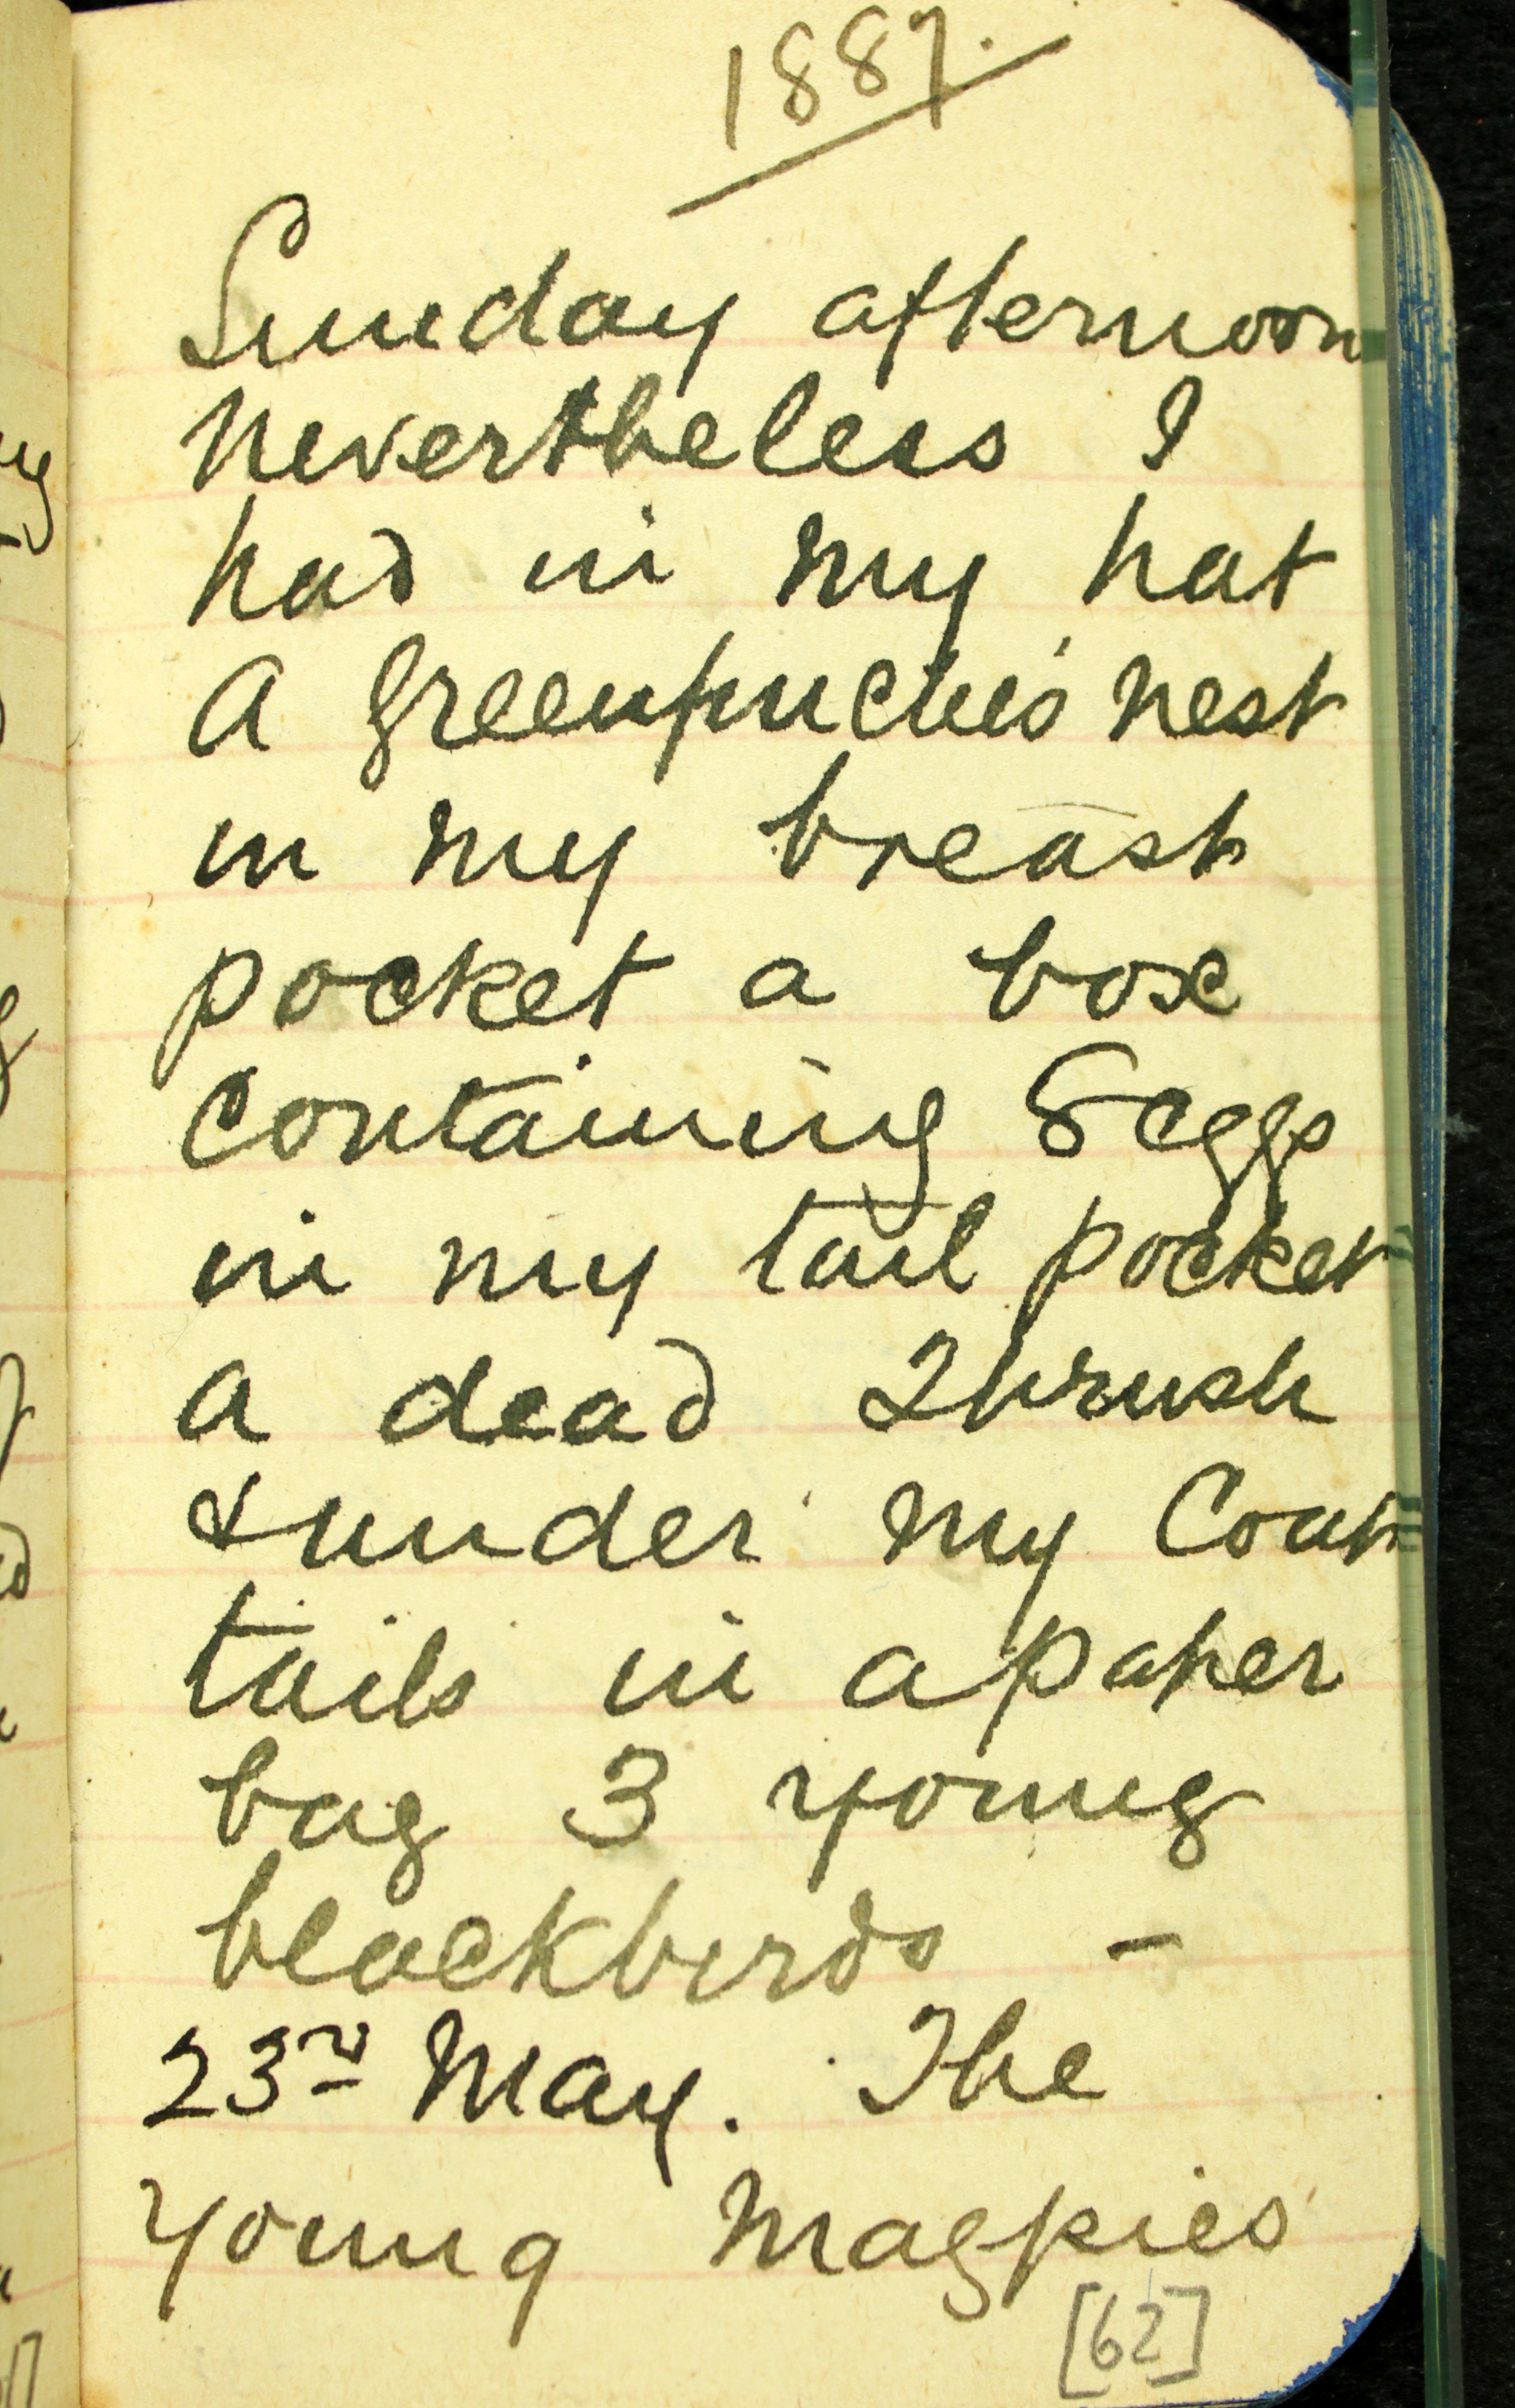 1887.
Sunday afternoon
nevertheless I
had in my hat
a greenfinch's nest
in my breast
pocket a box
containing 8 eggs
in my tail pocket
a dead Thrush
& under my Coat
tails in a paper
bag 3 young
blackbirds –
23rd May. The
young Magpies
[62]